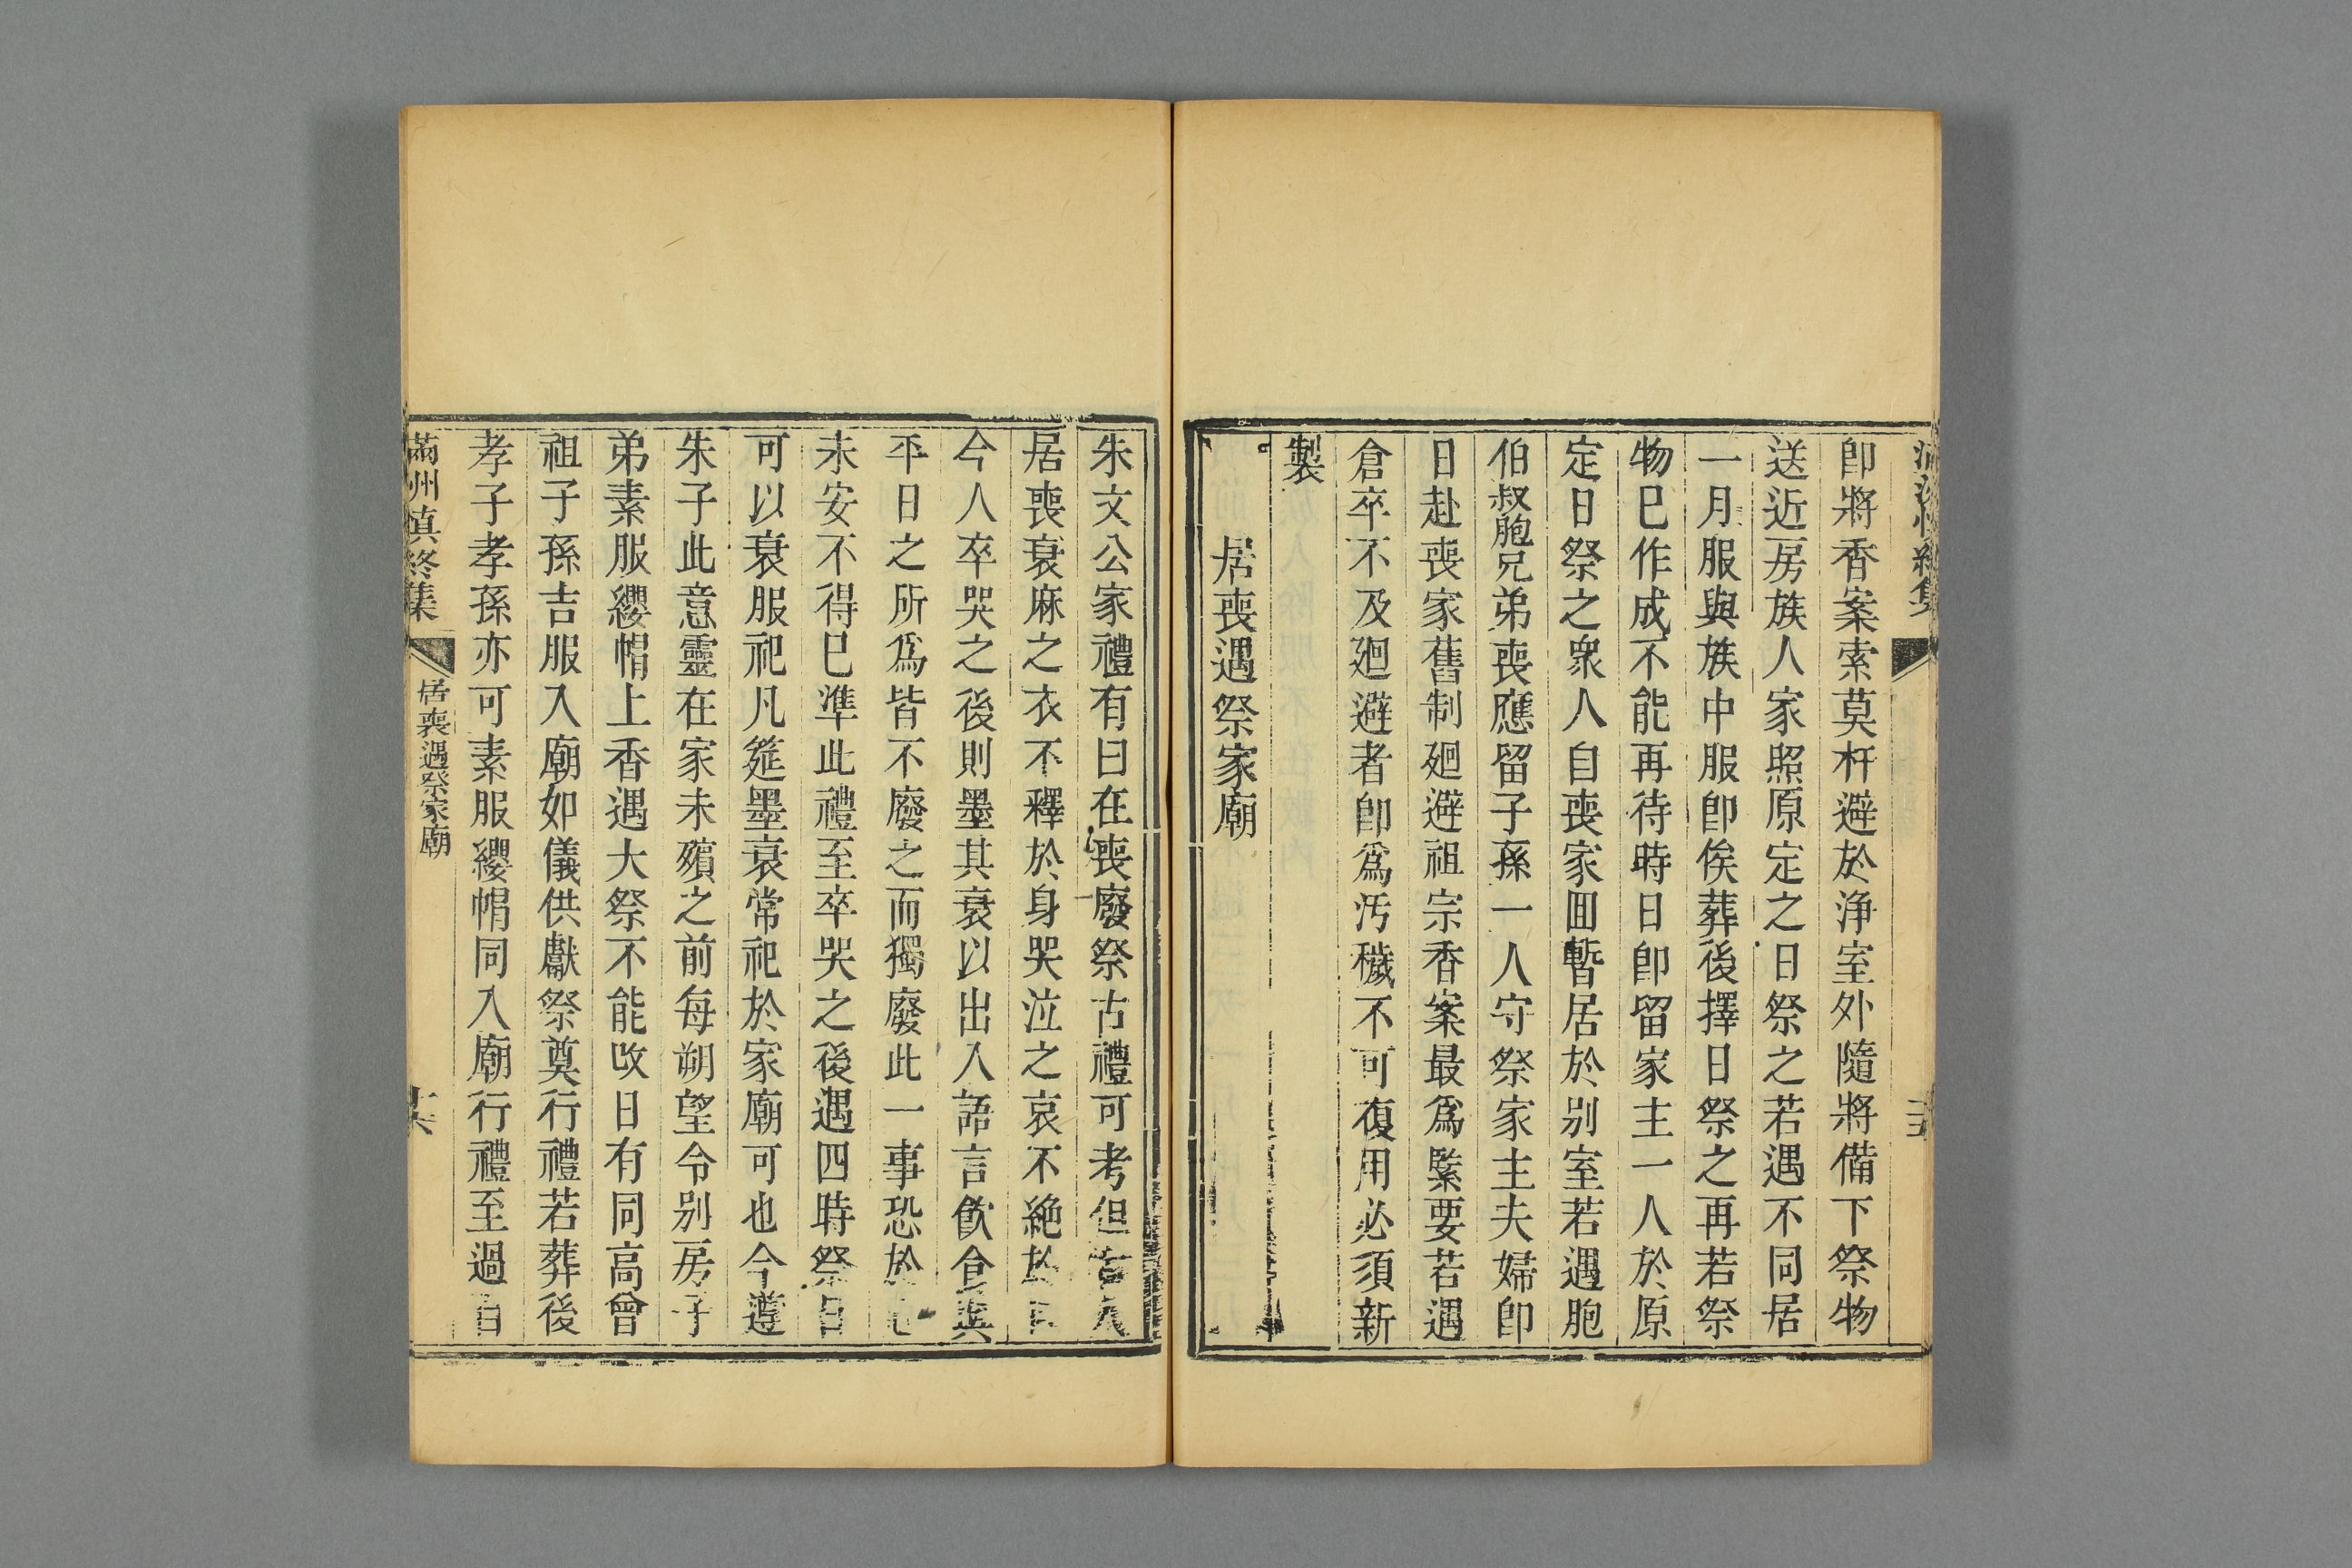 卽將香案索莫杆避於浄室外隨將備下祭物
送近房族人家照原定之日祭之若遇不同居
一月服與族中服卽俟葬後擇日祭之再若祭
物巳作成不能再待時日卽留家主一人於原
定日祭之衆人自喪家囬暫居於别室若遇胞
伯叔胞兄弟喪應留子孫一人守祭家主夫婦卽
日赴喪家舊制廻避祖宗香案最爲緊要若遇
倉卒不及廻避者卽爲汚穢不可復用必須新
製
居喪遇祭家廟
朱文公家禮有曰在喪廢祭古禮可考但古人
居喪衰麻之衣不釋於身哭泣之哀不絶於口
今人卒哭之後則墨其衰以出入語言飮食與
平日之所爲皆不廢之而獨廢此一事恐於
未安不得巳準此禮至卒哭之後遇四時祭日
可以衰服祀凡筵墨衰常祀於家廟可也今遵
朱子此意靈在家未殯之前每朔望令别房子
弟素服纓帽上香遇大祭不能改日有同高曾
祖子孫吉服入廟如儀供獻祭奠行禮若葬後
孝子孝孫亦可素服纓帽同入廟行禮至過百
滿州慎終集
居喪遇祭家廟